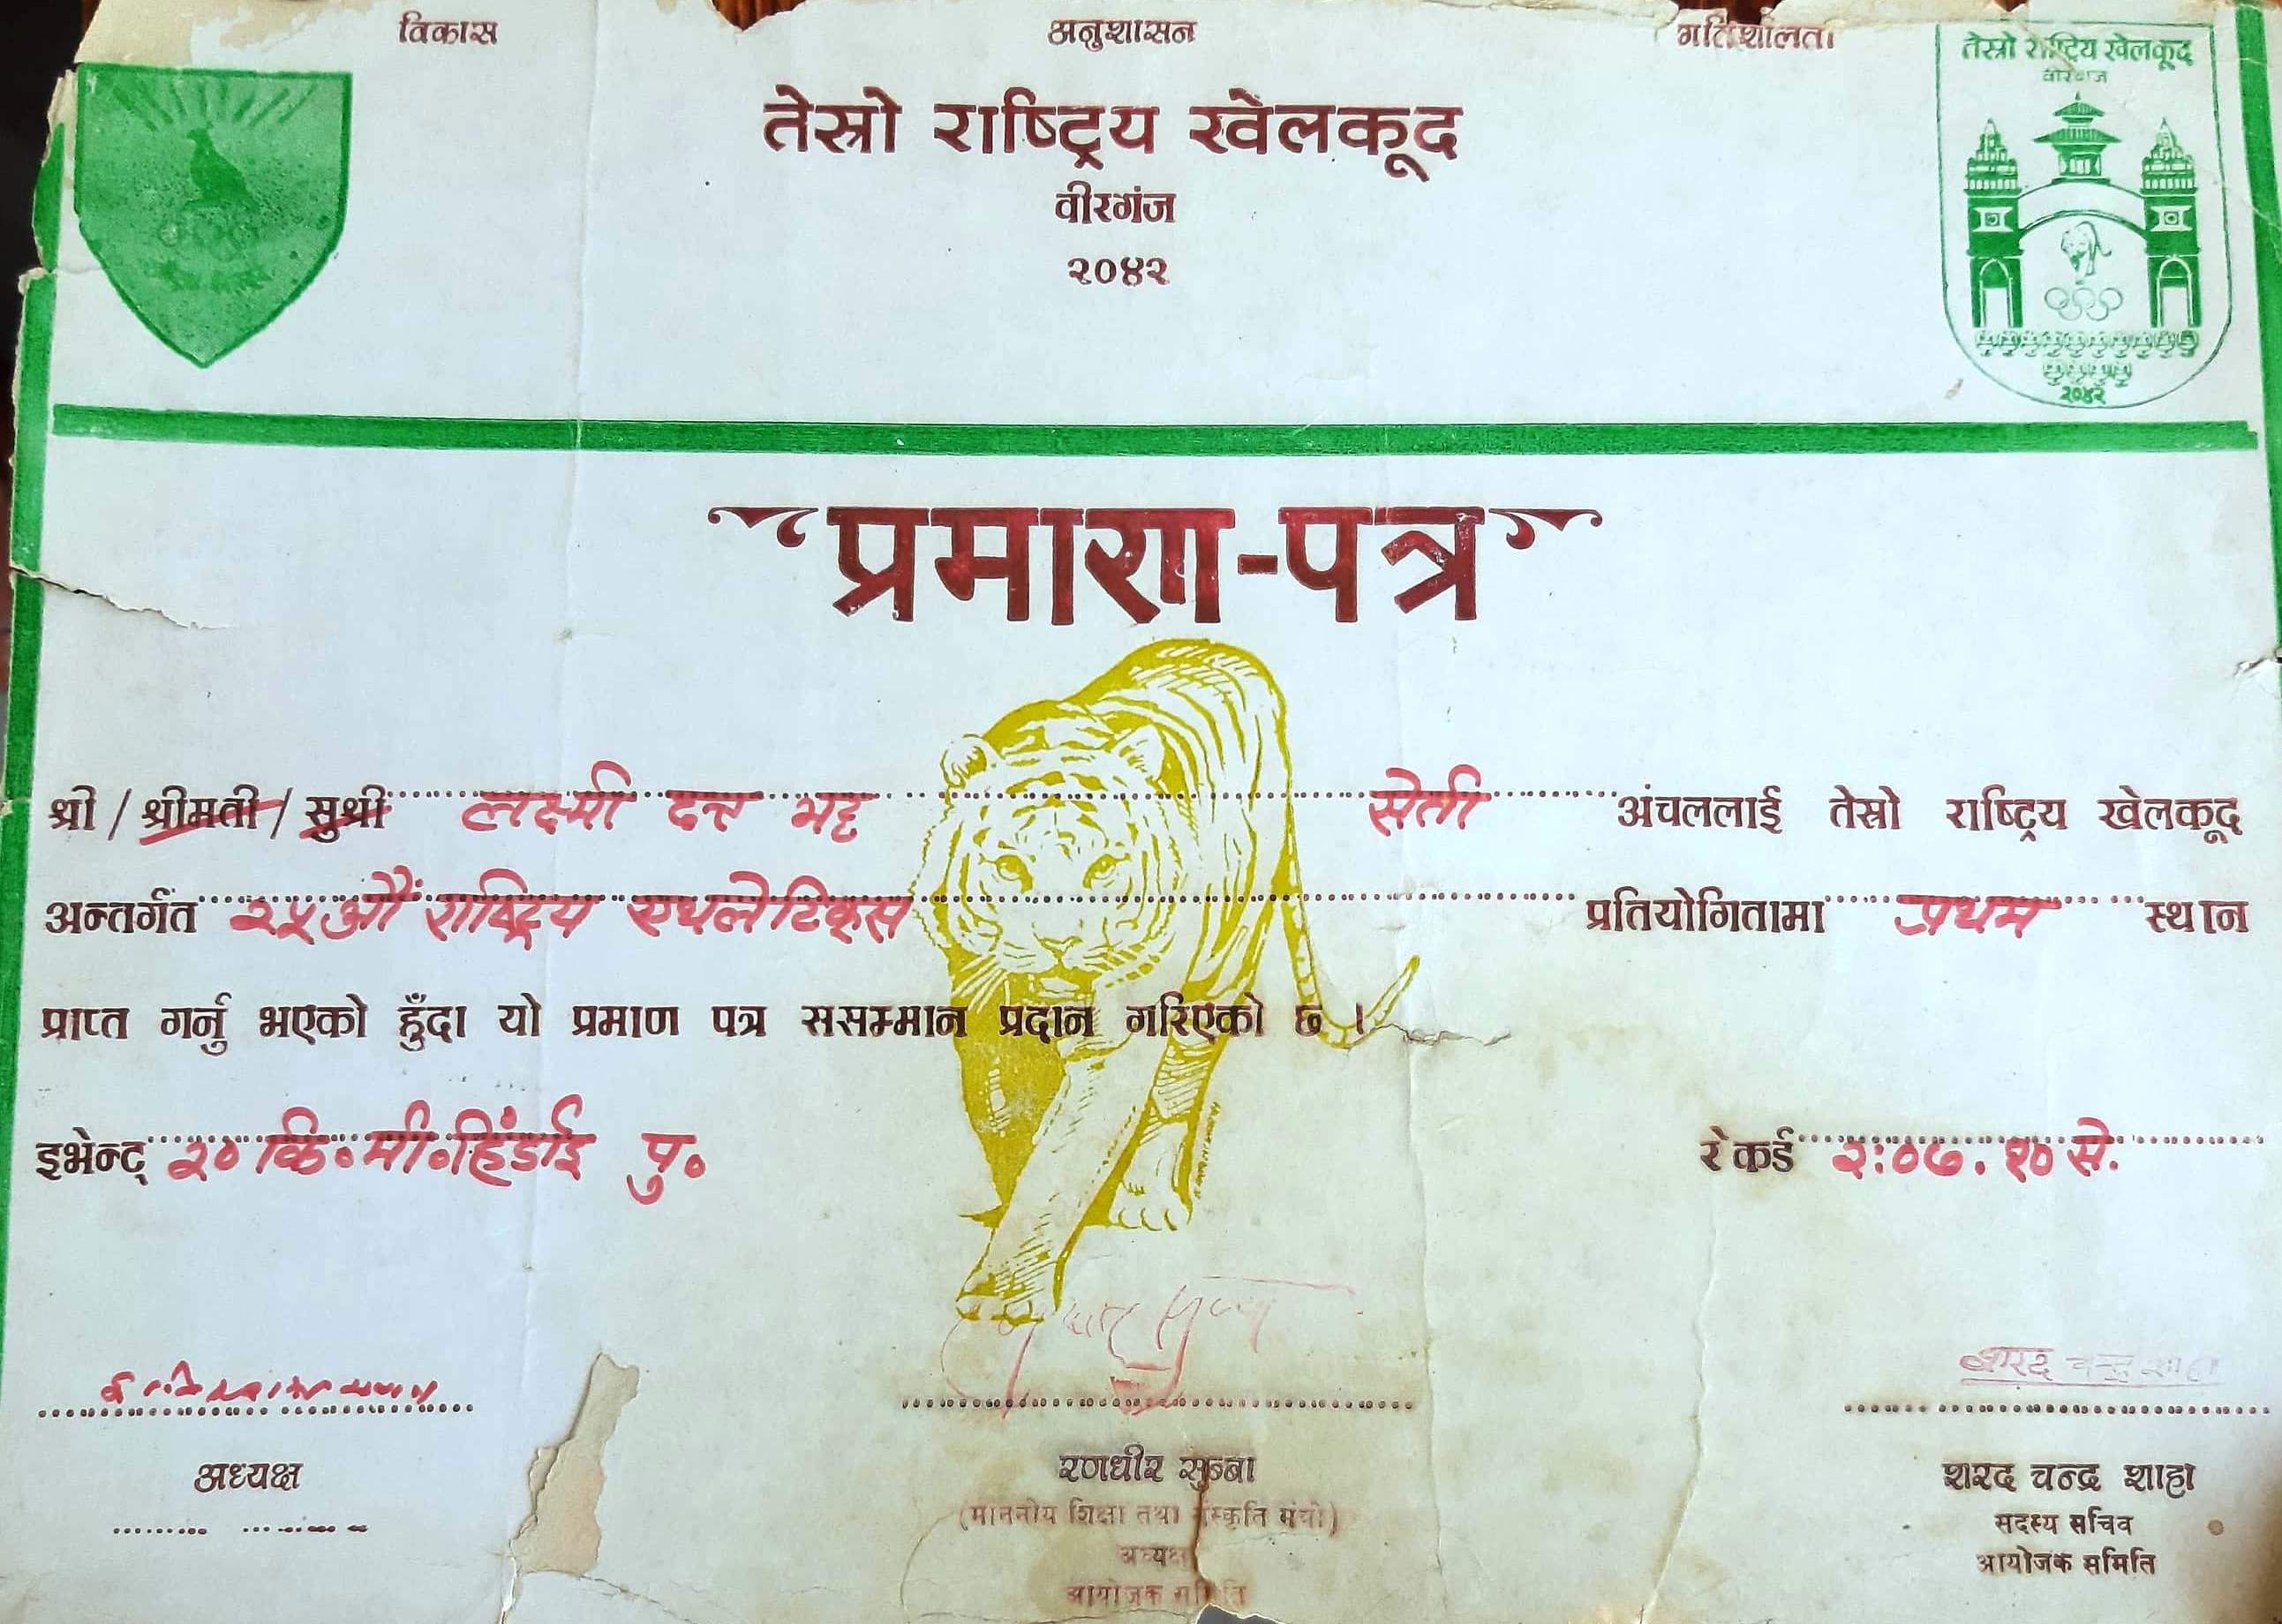 विकास अनुशासन गतिशीलता
तेस्रो राष्ट्रिय खेलकूद
वीरगंज
२०४२
तेस्रो राष्ट्रिय खेलकूद
वीरगंज
२०४२
प्रमाण-पत्र
श्री / श्रीमती / सुश्री लक्ष्मी दत्त भट्ट सेती अंचललाई तेस्रो राष्ट्रिय खेलकूद
अन्तर्गत २५औं राष्ट्रिय एथलेटिक्स प्रतियोगितामा प्रथम स्थान
प्राप्त गर्नु भएको हुँदा यो प्रमाण पत्र ससम्मान प्रदान गरिएको छ ।
इभेन्ट् २० कि.मी.हिंडाई पु. रेकर्ड २:०७.१० से.
शरद चन्द्र शाह
अध्यक्ष रणधीर सुब्बा शरद चन्द्र शाह
(माननीय शिक्षा तथा संस्कृति मंत्री) सदस्य सचिव
अध्यक्ष आयोजक समिति
आयोजक समिति